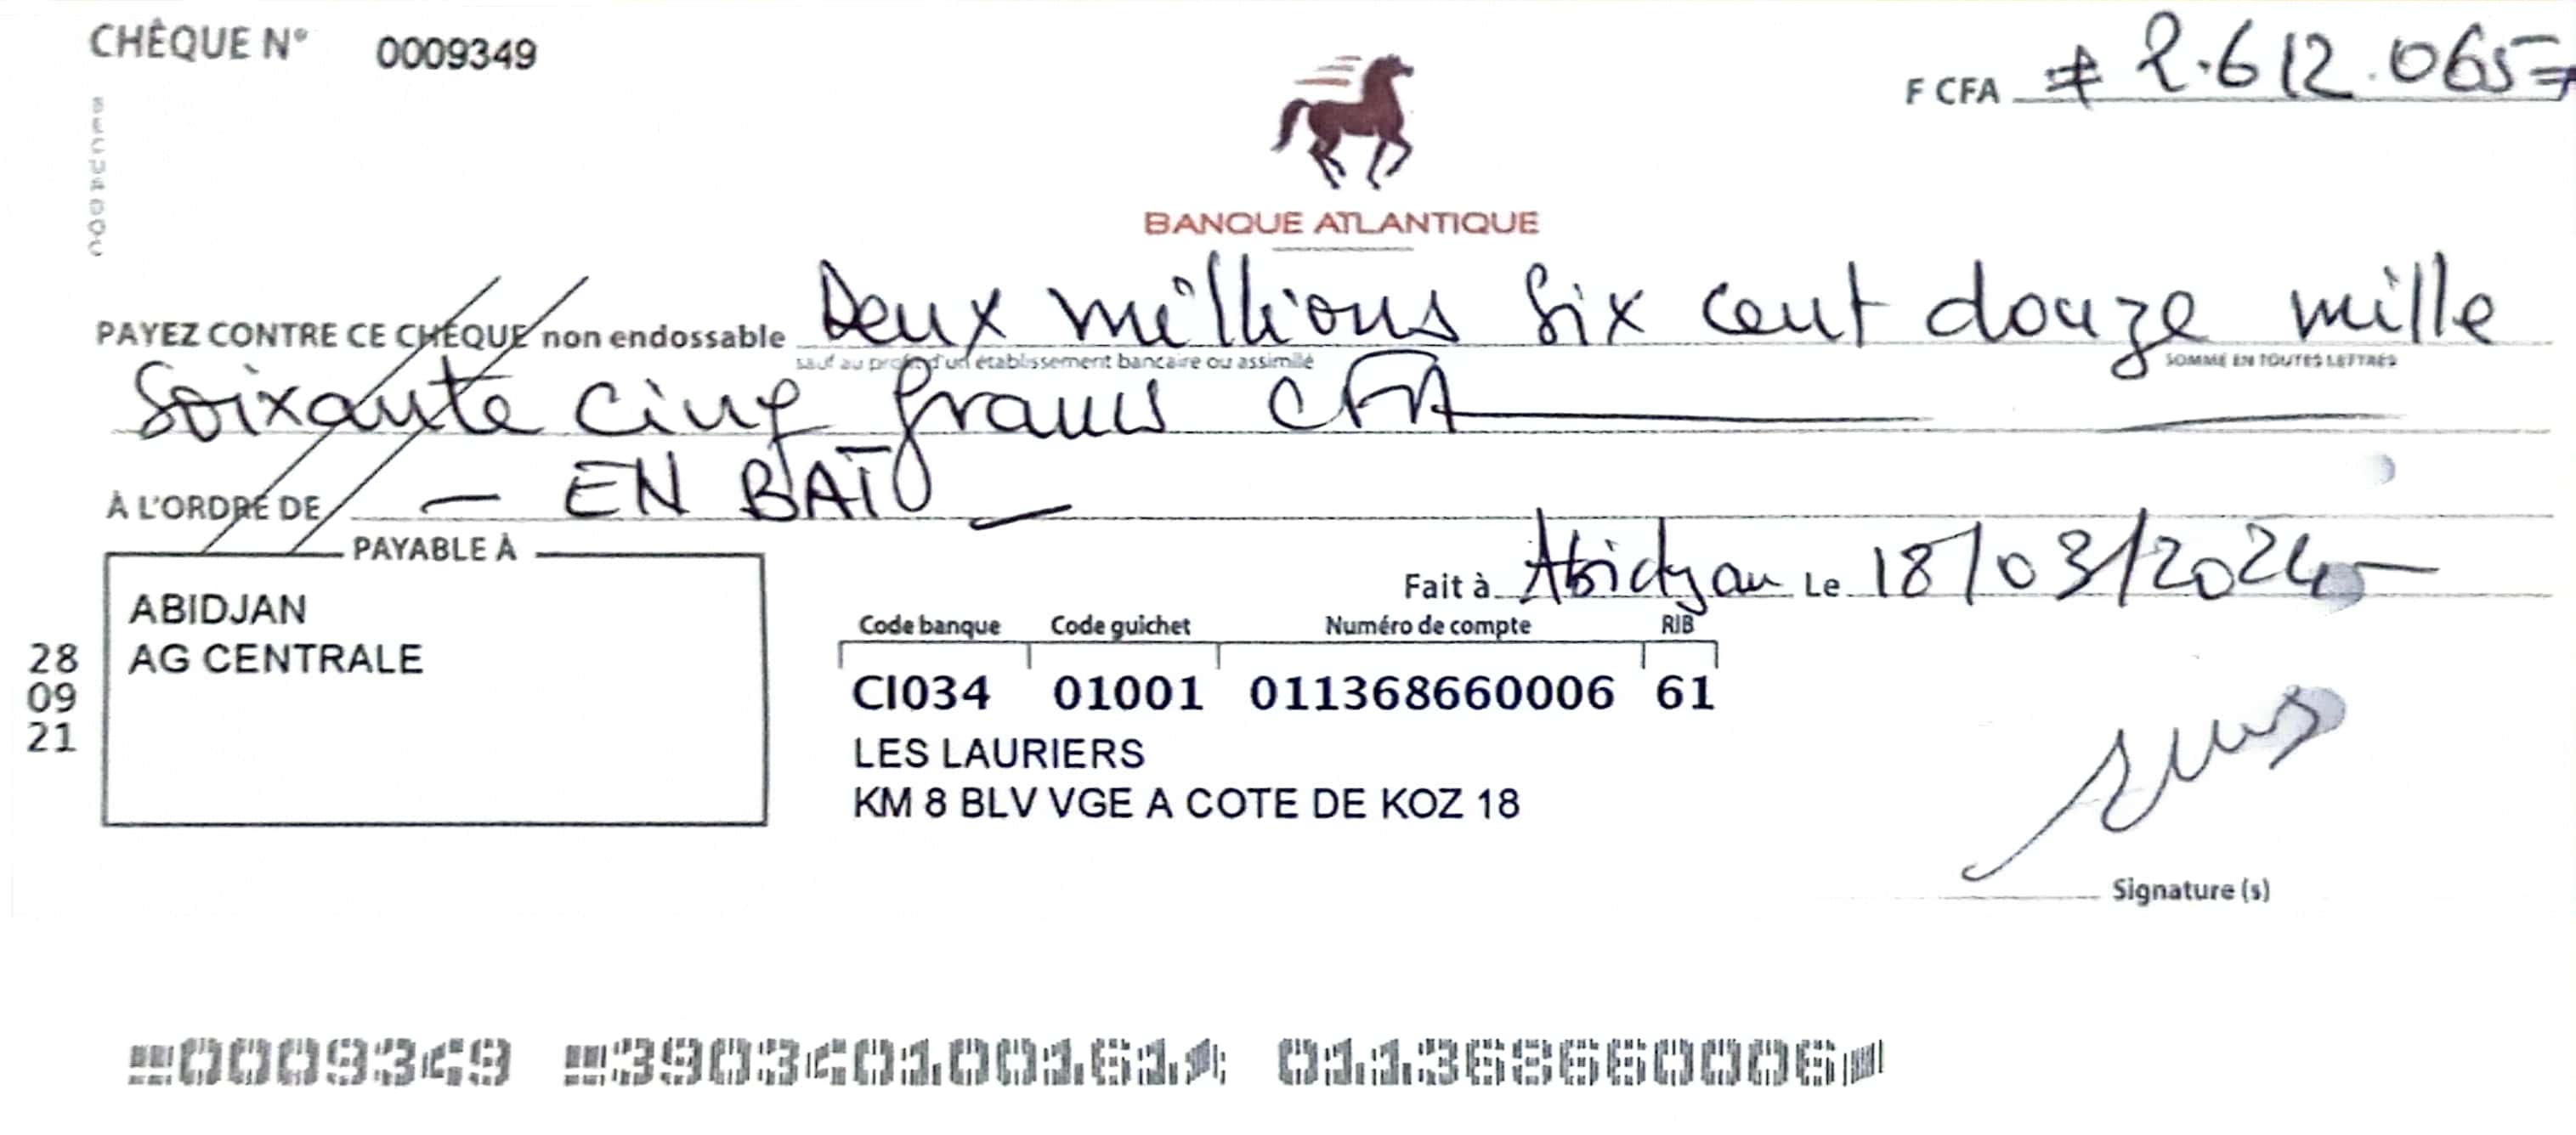 CHÈQUE N° 0009349
F CFA # 2.612.065=
SECURDOC
BANQUE ATLANTIQUE
PAYEZ CONTRE CE CHÈQUE non endossable Deux millions Six cent douze mille
sauf au profit d'un établissement bancaire ou assimilé SOMME EN TOUTES LETTRES
Soixante cinq francs CFA
À L'ORDRE DE — EN BAT —
PAYABLE À
Fait à Abidjan Le 18/03/2024
ABIDJAN
AG CENTRALE
28
09
21
Code banque Code guichet Numéro de compte RIB
CI034 01001 011368660006 61
LES LAURIERS
KM 8 BLV VGE A COTE DE KOZ 18
Signature (s)
0009349 3903401001614 011368660006